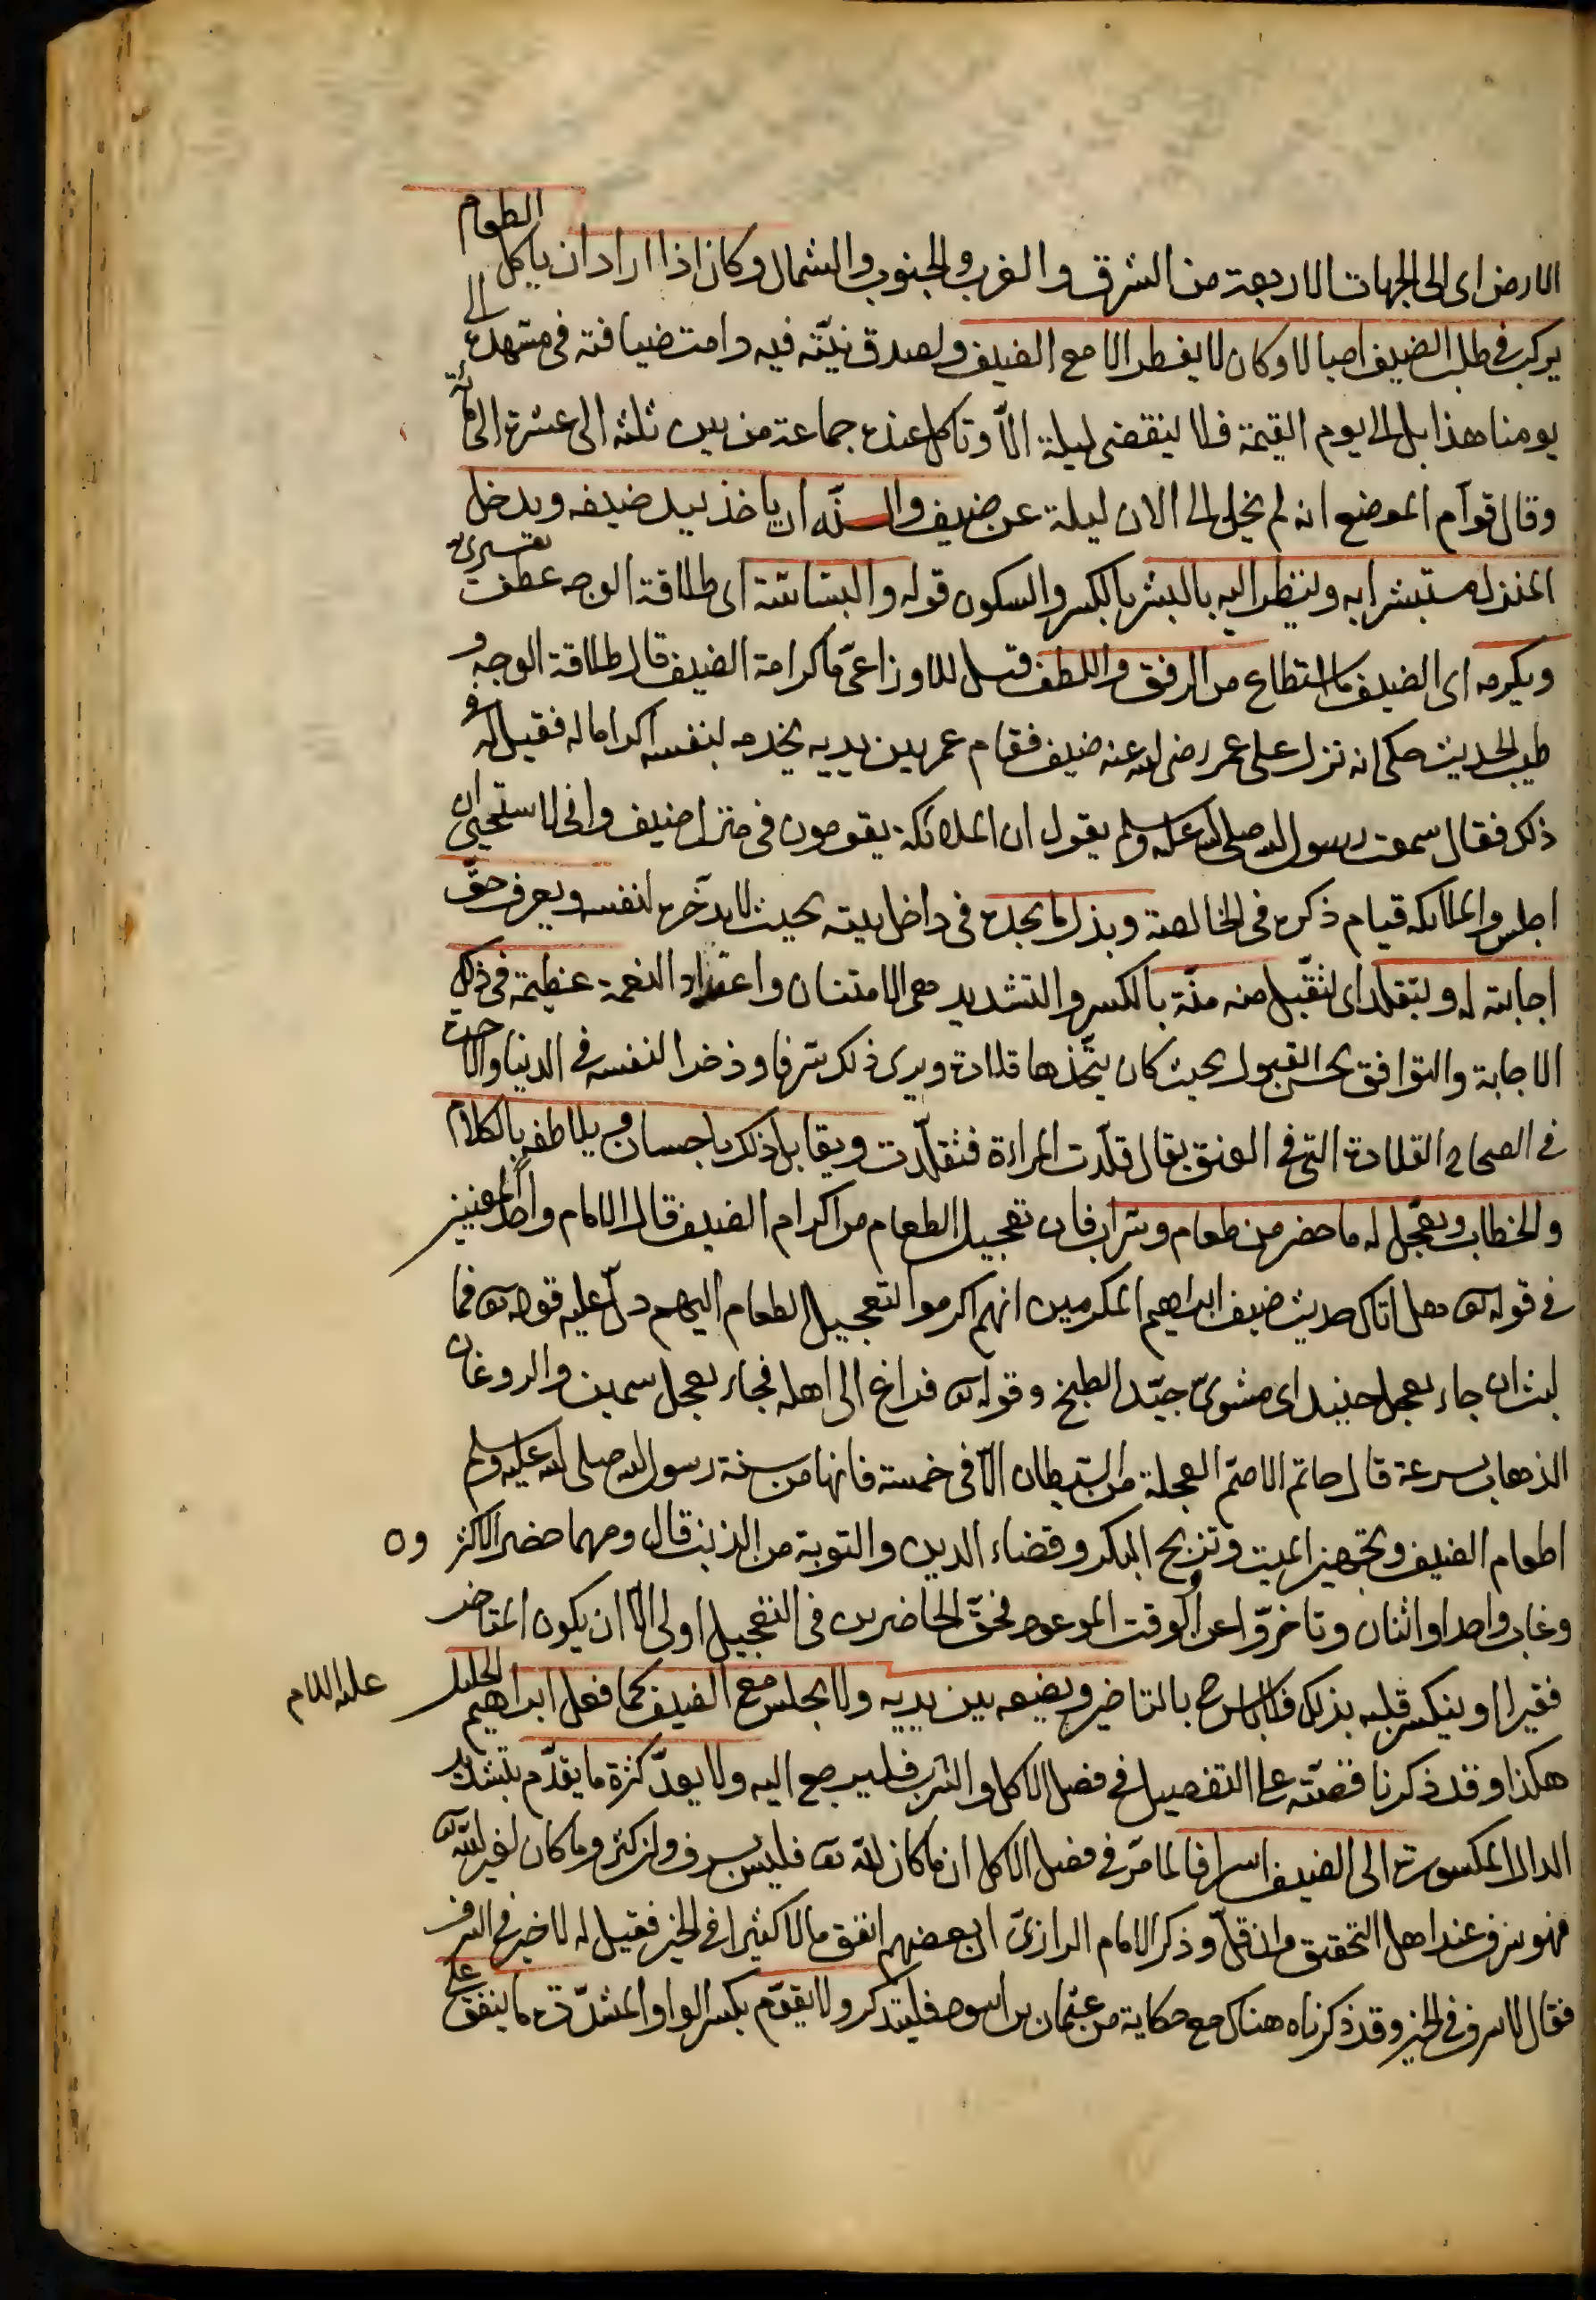 الارض اى الى الجهات الاربعة من الشرق والغرب والجنوب والشمال وكان اذا اراد ان ياكل الطعام
يركب فى طلب الضيف اميالا وكان لا يفطر الا مع الضيف ولصدق نيّته فيه دامت ضيافته فى مشهده الى
يومنا هذا بل الى يوم القيمة فلا ينقضى ليلة الّا وتاكل عنده جماعة من بين ثلثه الى عشرة الى مائة
وقال قوّام الموضع انه لم يخل الى الان ليلة عن ضيف والسنّه ان ياخذ بيد ضيفه ويدخل
المنزل مستبشرا به ولينظر اليه بالبشر بالكسر والسكون قوله والبشاشة اى طلاقة الوجه عطف تفسيرى
ويكرمه اى الضيف ما استطاع من الرفق واللطف قيل للاوزاعىّ ما كرامة الضيف قال طلاقة الوجه و
طيب الحديث حكى انه نزل على عمر رضى الله عنه ضيف فقام عمر بين يديه يخدمه بنفسه اكراما له فقيل له فى
ذلك فقال سمعت رسول الله صلى الله عليه وسلم يقول ان الملائكة يقومون فى منزل ضيف وانى لاستحيى ان
اجلس والملائكه قيام ذكره فى الخالصة وبذل ما يجده فى داخل بيته بحيث لا يدّخره لنفسه ويعرف حقّ
اجابته له وليتقلد اى ليتقبل منه منّة بالكسر والتشديد هى الامتنان واعتداد النعمة عظيمة فى ذلك
الاجابة والتوافق بحسن القبول بحيث كان يتّخذها قلادة ويرى ذلك شرفا وذخرا لنفسه فى الدنيا والآخرة
فى الصحاح القلادة التى فى العنق يقال قلّدت المراءة فتقلّدت ويقابل ذلك باحسان ويلاطفه بالكلام
والخطاب ويعجّل له ما حضر من طعام وشراب فان تعجيل الطعام من اكرام الضيف قال الامام واحد المعنيين
فى قوله تعه هل اتاك حديث ضيف ابراهيم المكرمين انهم اكرموا لتعجيل الطعام اليهم دلّ عليه قوله تعه فما
لبث ان جاء بعجل حنيذ اى مشوىّ جيّد الطبخ وقوله تعه فراغ الى اهله فجاء بعجل سمين والروغان
الذهاب بسرعة قال حاتم الاصمّ العجلة من الشيطان الّا فى خمسة فانها من سنة رسول الله صلى الله عليه وسلم
اطعام الضيف وتجهيز الميت وتزويج البكر وقضاء الدين والتوبة من الذنب قال ومهما حضر الاكثرون
وغاب واحد او اثنان وتاخرّوا عن الوقت الموعود فحقّ الحاضرين فى التعجيل اولى الّا ان يكون المتاخر
فقيرا او ينكسر قلبه بذلك فلا باس ح بالتاخير ويضعه بين يديه ولا يجلس مع الضيف كما فعل ابراهيم الخليل عليه السلام
هكذا وقد ذكرنا قصّته على التفصيل فى فصل الاكل والشرب فليرجع اليه ولا يعدّ كثرة ما يقدّم بتشديد
الدال المكسورة الى الضيف اسرافا لما مرّ فى فصل الاكل ان ما كان لله تعه فليس بسرف وان كثر وما كان لغير الله تعه
فهو سرف عند اهل التحقيق وان قلّ وذكر الامام الرازىّ ان بعضهم انفق مالا كثيرا فى الخير فقيل له لا خير فى السرف
فقال لا سرف فى الخير وقد ذكرناه هناك مع حكاية من عثمان بن اسود فليتذكر ولا يقوّم بكسر الواو المشدّدة ما ينفق على